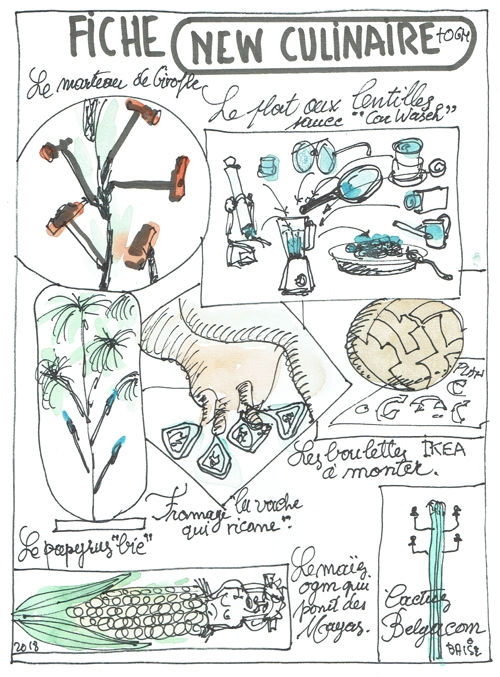 FICHE NEW CULINAIRE tOGM
Le marteau de Girofle
Le plat aux lentilles
sauce "Car Wasch"
Les boulettes IKEA
à monter.
Fromage "la vache
qui ricane".
Le papyrus "bic"
Le maïs
ogm qui
pond des
Mayas.
Cactus
Belgacom
à
BAISE
2018